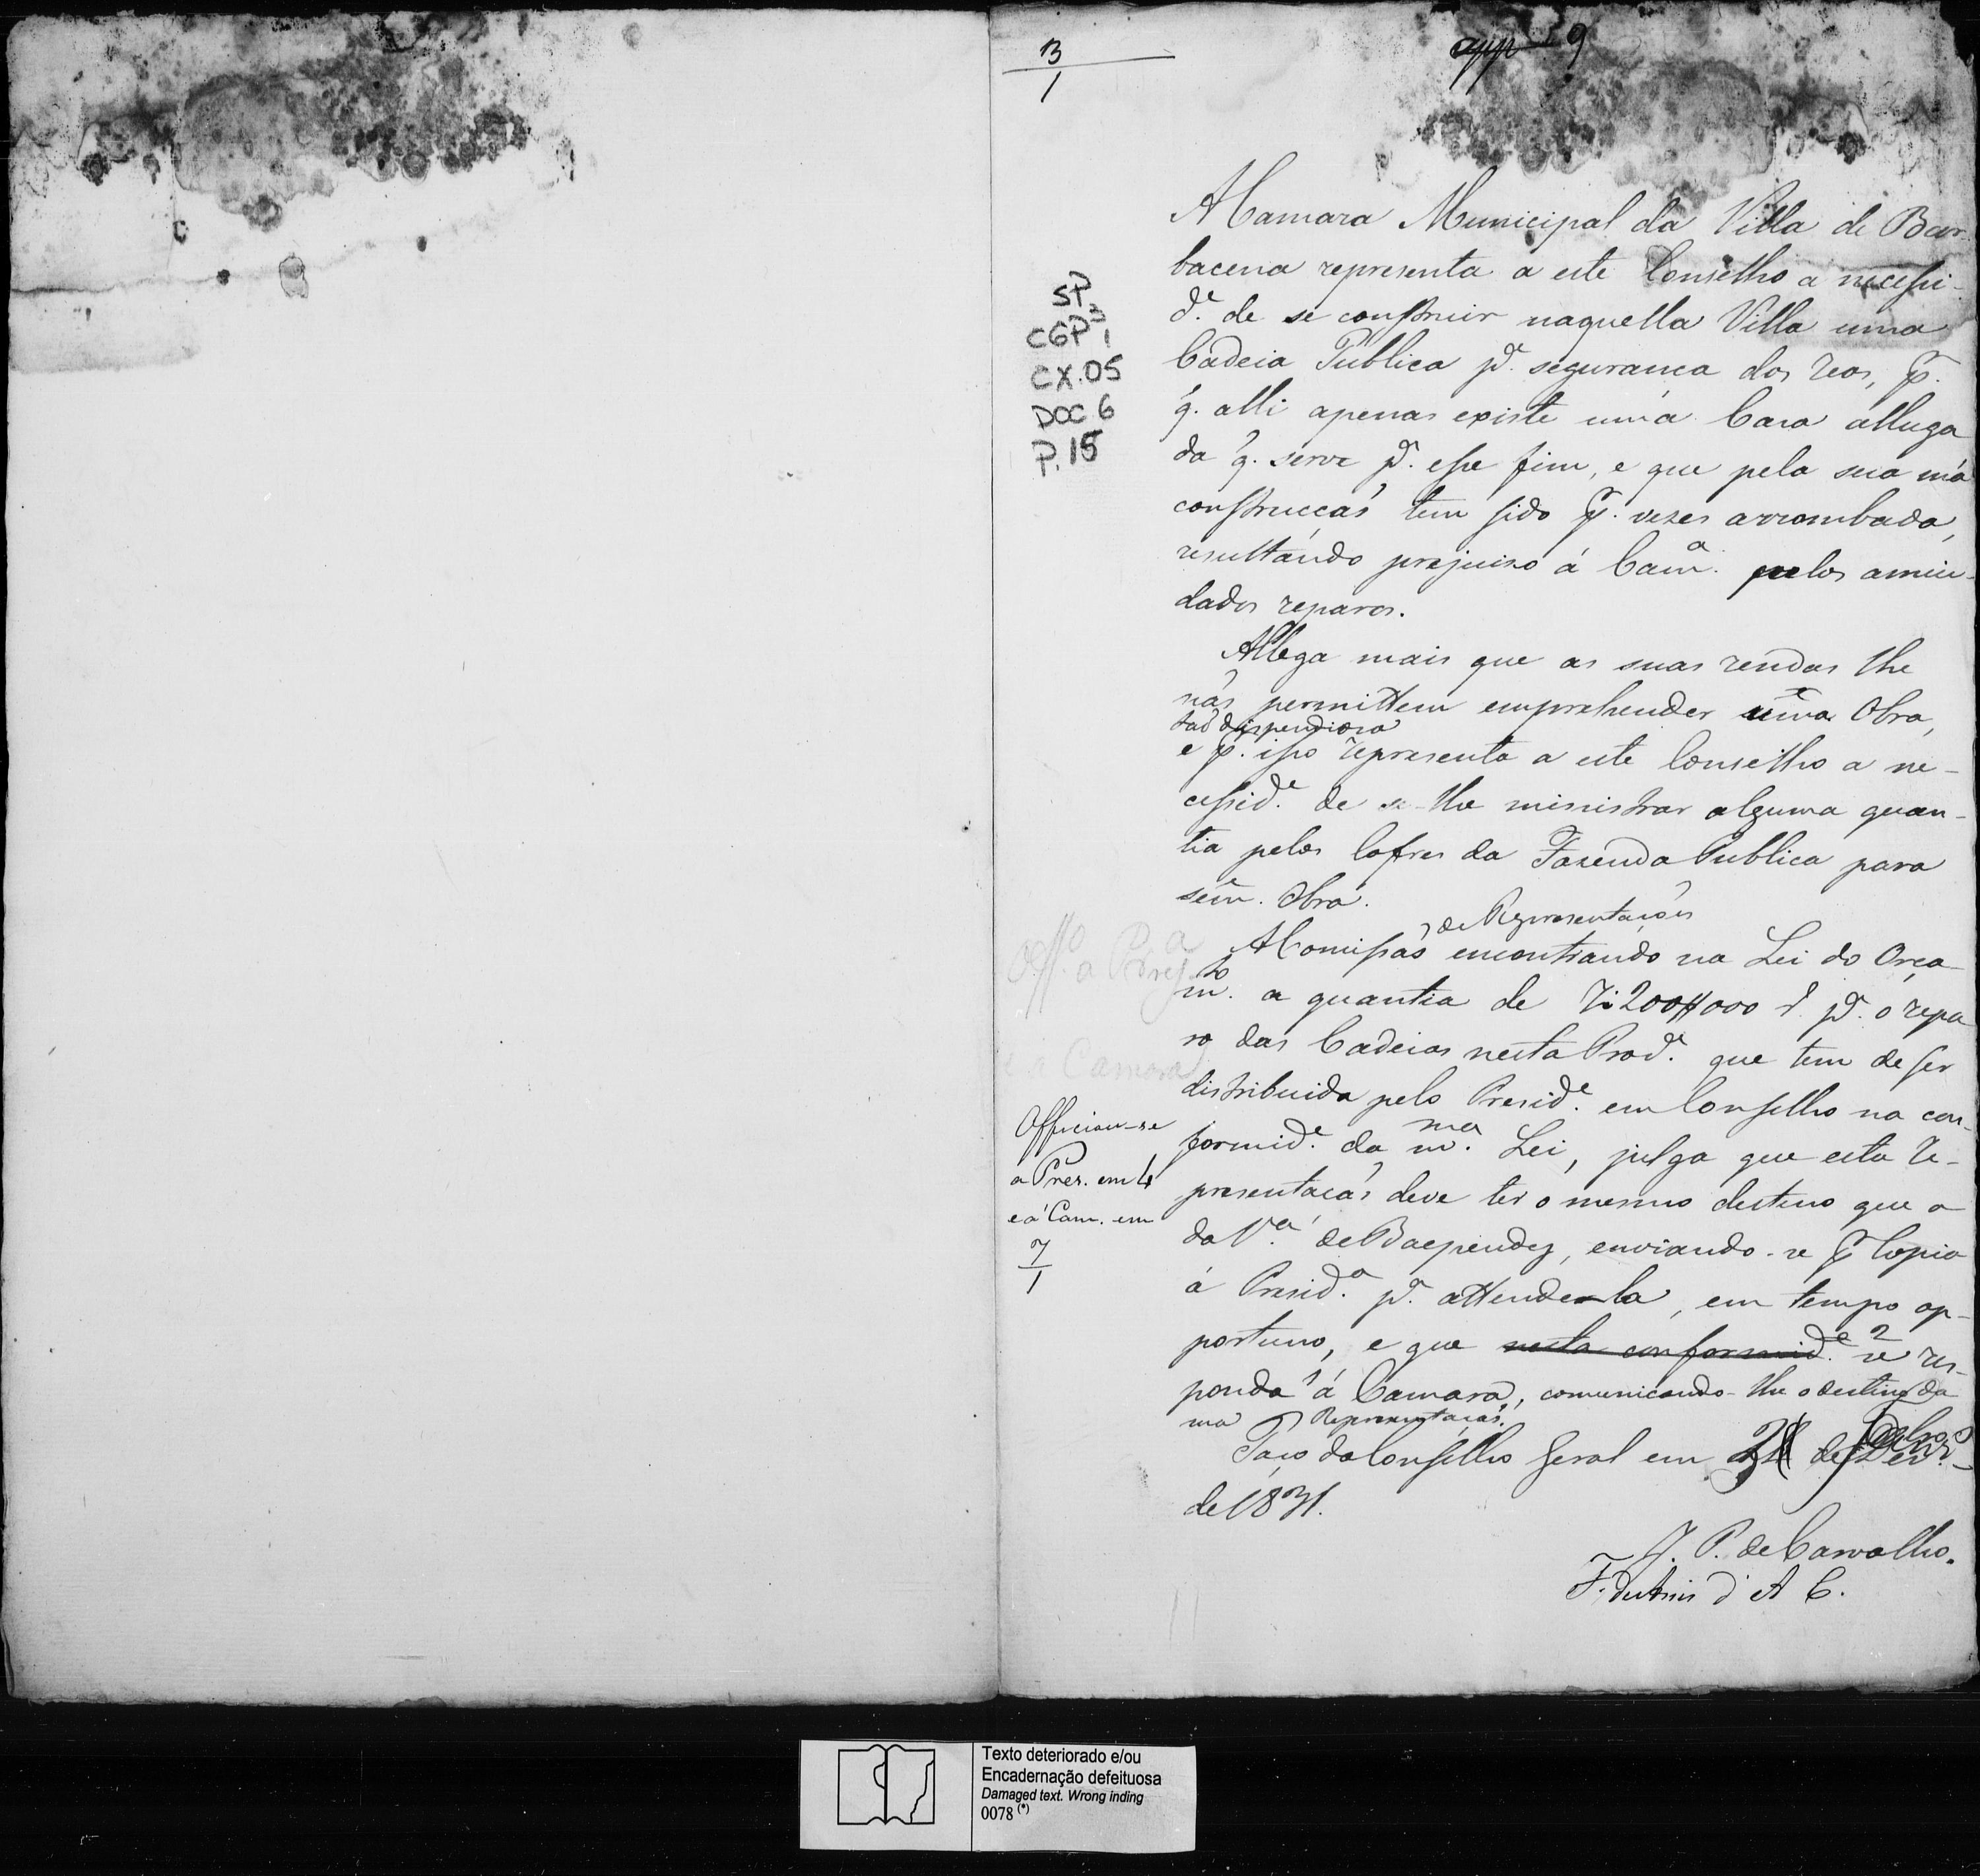 3
1
app 9
SP
CGP3 1
CX.05
DOC 6
P.15
A Camara Municipal da Villa de Bar-
bacena representa a este Conselho a necessi-
de. de se construir naquella Villa uma
Cadeia Publica pa. segurança dos reos, p.
q. alli apenas existe uma Casa alluga
da q. serve pa. esse fim, e que pela sua má
construcçaõ tem sido p. vezes arrombada,
resultando prejuizo á Cama. pelos amiu-
dados reparos.
Allega mais que as suas rendas lhe
naõ permittem emprehender uma Obra,
taõ dispendiosa
e p. isso representa a este Conselho a ne-
cesside. de se lhe ministrar alguma quan-
tia pelos Cofres da Fazenda Publica para
seme. Obra.
de Representaçoẽs
A Comissaõ encontrando na Lei do Orça-
mto. a quantia de 7:200#000 rs. pa. o repa
ro das Cadeias nesta Prova. que tem de ser
distribuida pelo Preside. em Conselho na con-
formide. da mma. Lei, julga que esta Re-
presentaçaõ deve ter o mesmo destino que a
da Va. de Baependy, enviando-se p Copia
á Presida. pa. attendela, em tempo op-
portuno, e que nesta conformide. se res-
ponda á Camara, comunicando-lhe o destino da
ma Representaçaõ.
Paço do Conselho Geral em de
de 1831.
J. P. de Carvalho.
F. d'A C.
Offo. a Presa
e a Camara
Officiou-se
a Pres. em 4
e á Cam. em
7
1
Texto deteriorado e/ou
Encadernação defeituosa
Damaged text. Wrong inding
0078 (*)